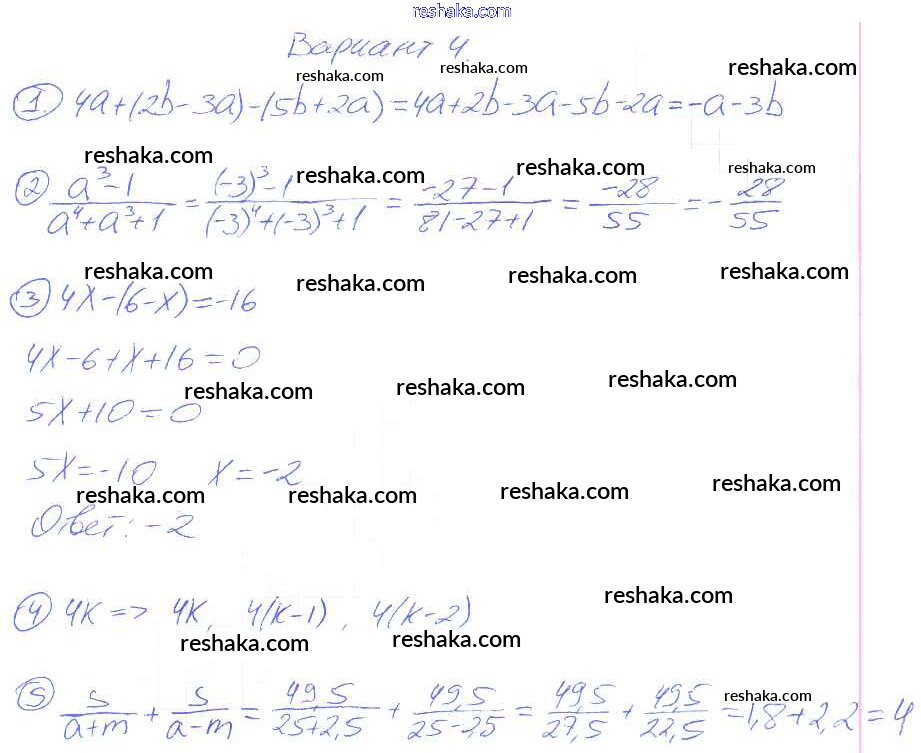 reshaka.com
Вариант 4.
reshaka.com reshaka.com reshaka.com
① 4a+(2b-3a)-(5b+2a)=4a+2b-3a-5b-2a=-a-3b
reshaka.com reshaka.com reshaka.com reshaka.com
② \frac{a^3-1}{a^4+a^3+1} = \frac{(-3)^3-1}{(-3)^4+(-3)^3+1} = \frac{-27-1}{81-27+1} = \frac{-28}{55} = -\frac{28}{55}
reshaka.com reshaka.com reshaka.com reshaka.com
③ 4x-(6-x)=-16
4x-6+x+16=0
reshaka.com reshaka.com reshaka.com
5x+10=0
5x=-10 x=-2
reshaka.com reshaka.com reshaka.com reshaka.com
Ответ: -2
reshaka.com
④ 4k => 4k, 4(k-1), 4(k-2)
reshaka.com reshaka.com
⑤ \frac{s}{a+m} + \frac{s}{a-m} = \frac{49,5}{25+2,5} + \frac{49,5}{25-2,5} = \frac{49,5}{27,5} + \frac{49,5}{22,5} = 1,8+2,2=4
reshaka.com